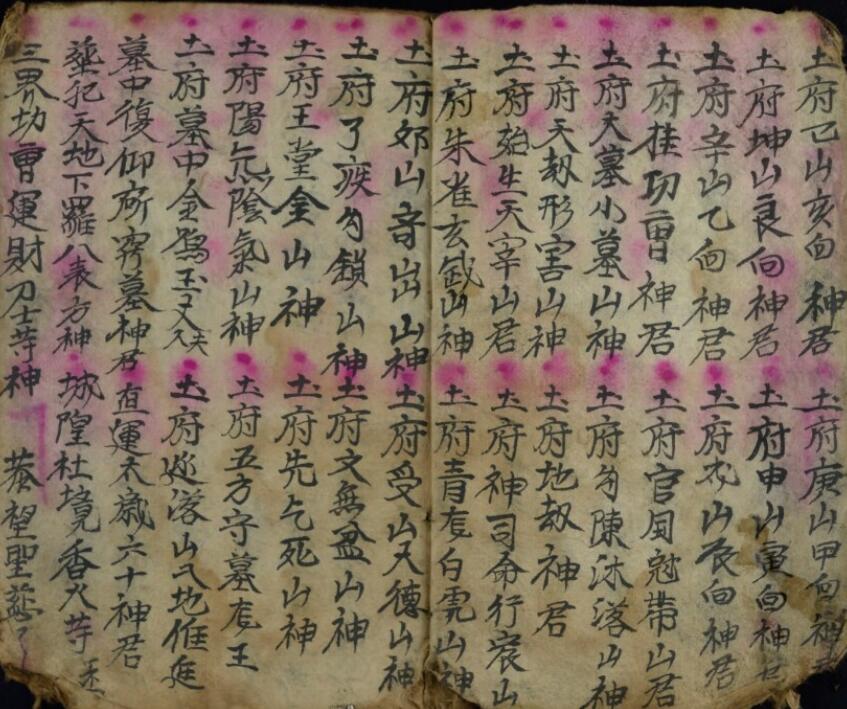 土府已山亥向神君 土府庚山甲向神君
土府坤山艮向神君 土府申山寅向神君
土府辛山乙向神君 土府戌山辰向神君
土府掛功曹神君 土府官国冠帶山君
土府大墓小墓山神 土府勾陳沐落山神
土府天刼形害山神 土府地刼神君
土府殆生天宰山君 土府神司命行衰山
土府朱雀玄武山神 土府青龙白虎山神
土府郊山音出山神 土府受山天德山神
土府了疾勾鎖山神 土府文無盆山神
土府王堂金山神 土府先乞死山神
土府陽氣陰氣山神 土府五方守墓龙王
土府墓中金 玉 土府 落山 地 
墓中復仰所 墓神君 直運太歲六十神君
塟犯天地下羅八表方神 城隍社境香火等
三界功曹運財力士等神 恭望聖慈